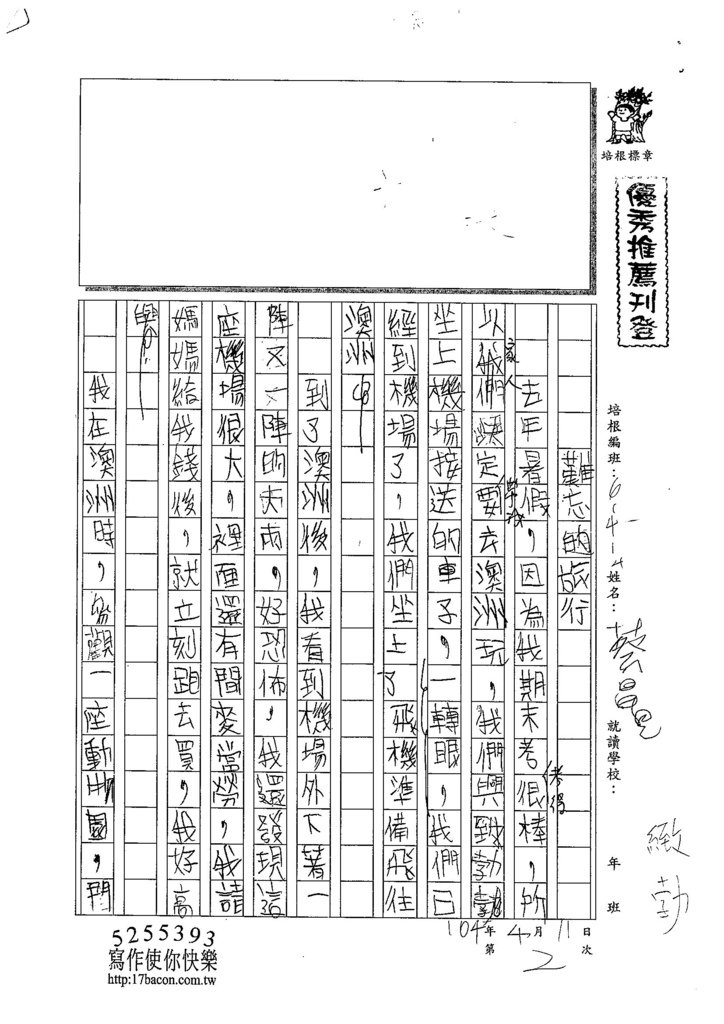 培根標章
優秀推薦刊登
培根編班：6-4-
姓名：蔡昌
就讀學校：
年 班
緻勃
難忘的旅行
去年暑假，因為我期末考很棒，所
考得
以我們決定要去澳洲玩，我們興致勃勃
家人
坐上機場接送的車子，一轉眼，我們已
經到機場了，我們坐上了飛機準備飛往
澳洲中
到了澳洲後，我看到機場外下著一
陣又一陣的大雨，好恐佈，我還發現這
座機場很大，裡面還有間麥當勞，我請
媽媽給我錢後，就立刻跑去買，我好高
興！
我在澳洲時，參觀一座動物園，門
104年4月11日
第2次
5255393
寫作使你快樂
http:17bacon.com.tw